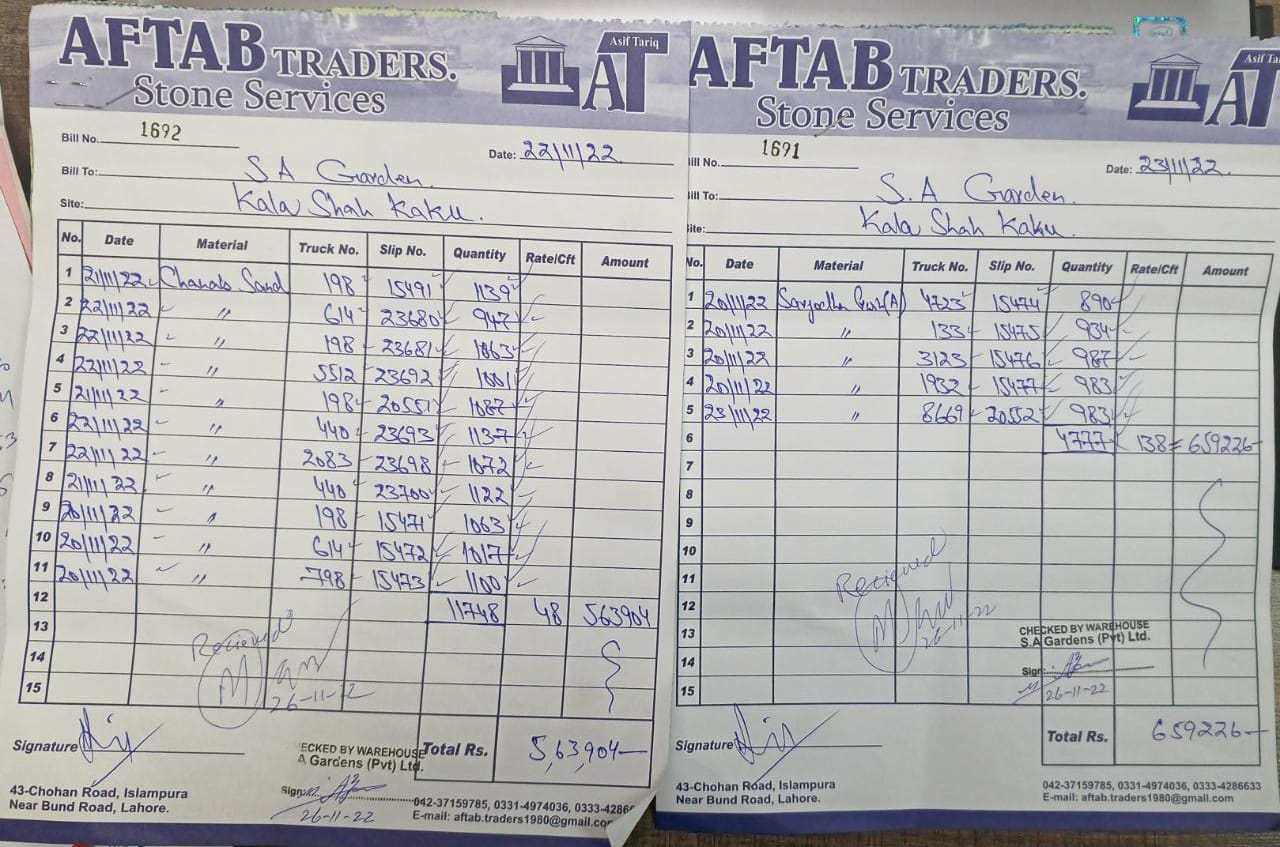 AFTAB TRADERS.
Stone Services
Asif Tariq
AT
Bill No. 1692
Date: 22/11/22
Bill To: S A Garden.
Site: Kala Shah Kaku.
No. Date Material Truck No. Slip No. Quantity Rate/Cft Amount
1 21/11/22 Chanab Sand 198 15491 1139
2 22/11/22 〃 614 23680 947
3 22/11/22 〃 198 23681 1063
4 22/11/22 〃 5512 23692 1001
5 21/11/22 〃 198 20551 1087
6 22/11/22 〃 440 23693 1137
7 22/11/22 〃 2083 23698 1072
8 21/11/22 〃 440 23700 1122
9 20/11/22 〃 198 15471 1063
10 20/11/22 〃 614 15472 1017
11 20/11/22 〃 798 15473 1100
12 11748 48 563904
13
14
15
Recieved
26-11-22
Signature
ECKED BY WAREHOUSE
A Gardens (Pvt) Ltd.
Sign:
26-11-22
Total Rs. 5,63,904
43-Chohan Road, Islampura
Near Bund Road, Lahore.
042-37159785, 0331-4974036, 0333-4286
E-mail: aftab.traders1980@gmail.co
AFTAB TRADERS.
Stone Services
Asif Ta
AT
ill No. 1691
Date: 23/11/22
ill To: S.A Garden.
ite: Kala Shah Kaku.
No. Date Material Truck No. Slip No. Quantity Rate/Cft Amount
1 20/11/22 (A) 4723 15474 890
2 20/11/22 〃 133 15475 934
3 20/11/22 〃 3123 15476 987
4 20/11/22 〃 1932 15477 983
5 23/11/22 〃 8669 20552 983
6 4777 138 = 659226
7
8
9
10
11
12
13
14
15
Recieved
26-11-22
CHECKED BY WAREHOUSE
S.A Gardens (Pvt) Ltd.
Sign:
26-11-22
Signature
Total Rs. 659226
43-Chohan Road, Islampura
Near Bund Road, Lahore.
042-37159785, 0331-4974036, 0333-4286633
E-mail: aftab.traders1980@gmail.com